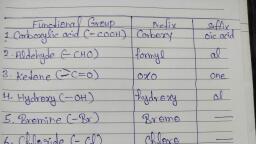 Functional Group Prefix Suffix
1. Carboxylic acid (-COOH) Carboxy oic acid
2. Aldehyde (-CHO) formyl al
3. Ketone (-C=O) oxo one
4. Hydroxy (-OH) hydroxy al
5. Bromine (-Br) Bromo —
6. Chloride (-Cl) Chloro